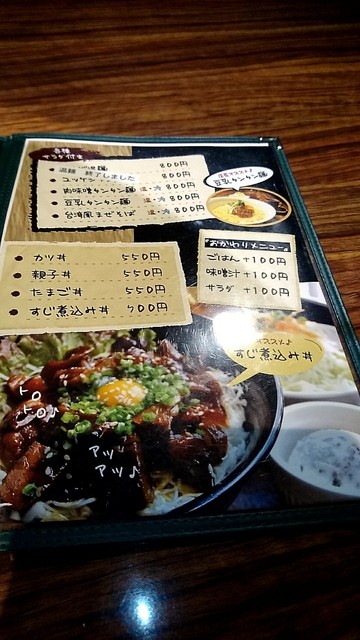 各種
サラダ付き
800円
温麺 終了しました 800円
ユッケジャン 800円
肉味噌タンタン麺 温・冷 800円
豆乳タンタン麺 温・冷 800円
台湾風まぜそば 温・冷 800円
店長オススメ♪
豆乳タンタン麺
おかわりメニュー。
ごはん +100円
味噌汁 +100円
サラダ +100円
カツ丼 550円
親子丼 550円
たまご丼 550円
すじ煮込み丼 700円
オススメ♪
すじ煮込み丼
トロ
トロ♪
アツ
アツ♪